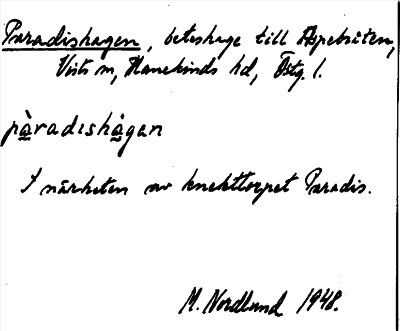 Paradishagen, beteshage till Aspebråten,
Vists sn, Hanekinds hd, Östg. l.
pàradishàgen
I närheten av knekttorpet Paradis.
M. Nordlund 1948.